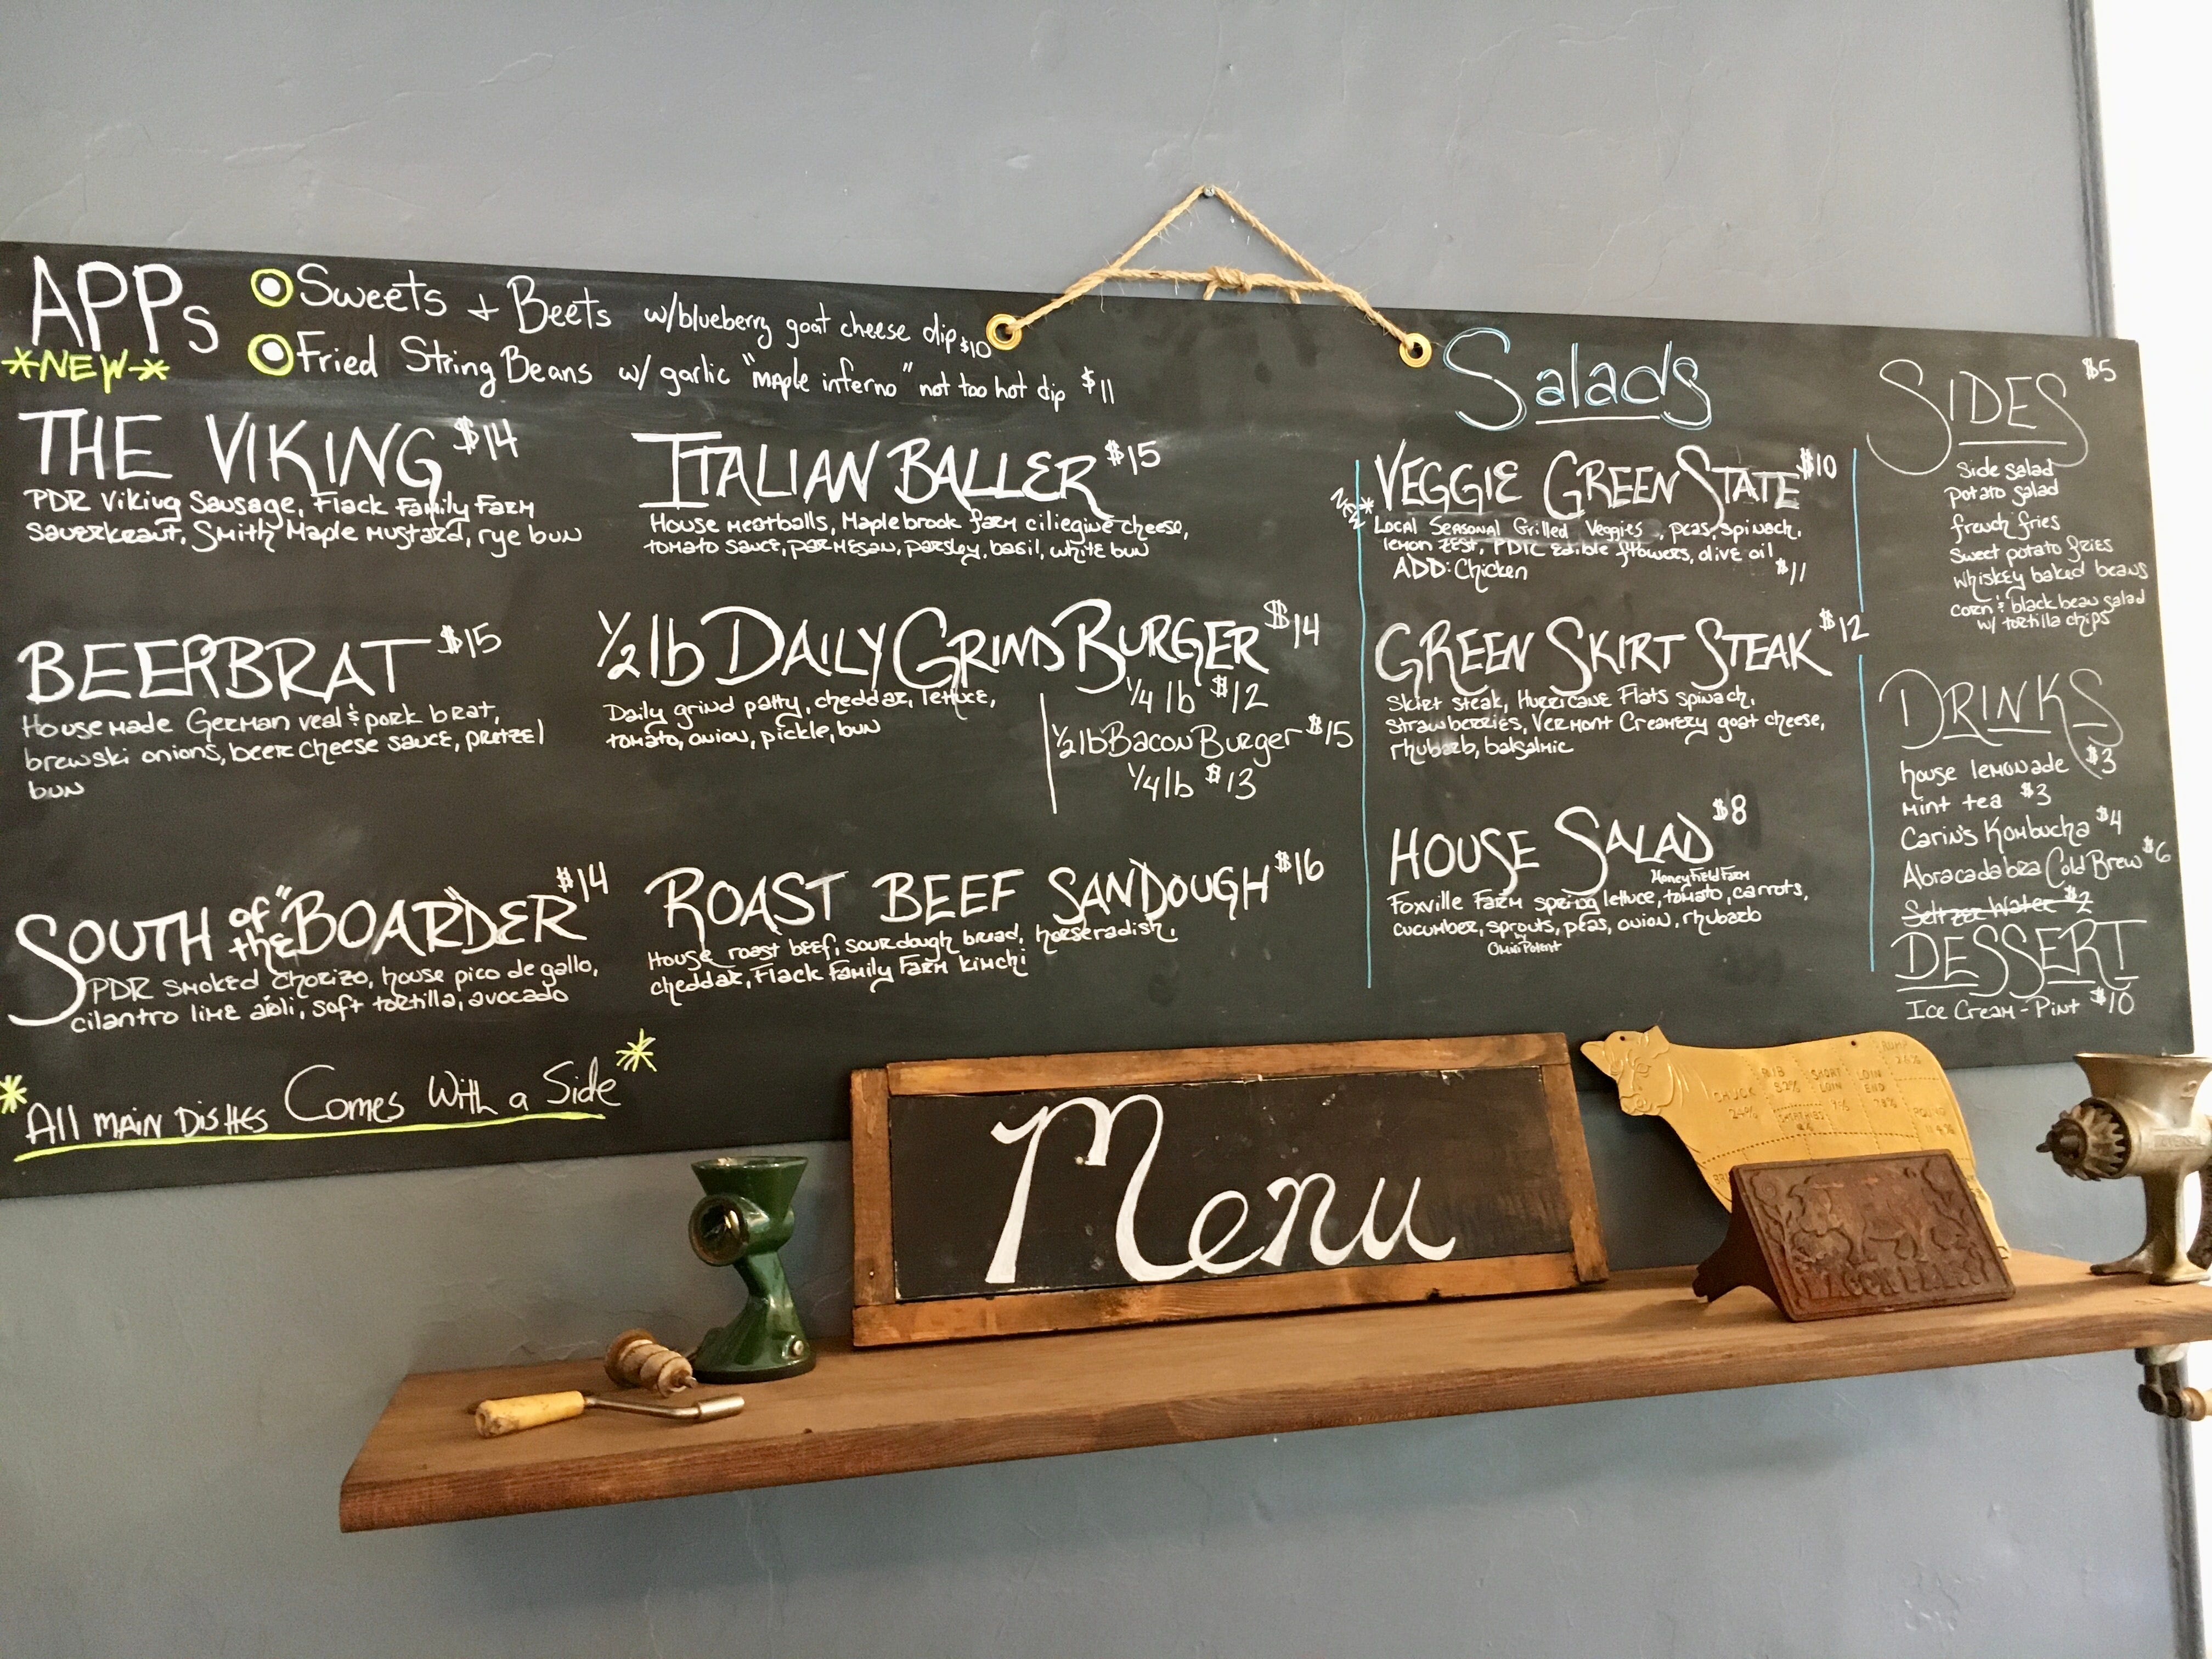 APPs
*NEW*
Sweets + Beets w/blueberry goat cheese dip $10
Fried String Beans w/ garlic "maple inferno" not too hot dip $11
THE VIKING $14
PDR Viking Sausage, Flack Family Farm
Sauerkraut, Smith Maple Mustard, rye bun
BEERBRAT $15
House made German veal & pork brat,
brewski onions, beer cheese sauce, pretzel
bun
SOUTH of the "BOARDER" $14
PDR smoked chorizo, house pico de gallo,
cilantro lime aioli, soft tortilla, avocado
*All main Dishes Comes With a Side*
ITALIAN BALLER $15
House meatballs, Maplebrook farm ciliegine cheese,
tomato sauce, parmesan, parsley, basil, white bun
1/2 lb DAILY GRIND BURGER $14
Daily grind patty, cheddar, lettuce,
tomato, onion, pickle, bun
1/4 lb $12
1/2 lb Bacon Burger $15
1/4 lb $13
ROAST BEEF SANDOUGH $16
House roast beef, sourdough bread, horseradish,
cheddar, Flack Family Farm kimchi
Salads
*NEW*
VEGGIE GREEN STATE $10
Local Seasonal Grilled Veggies, peas, spinach,
lemon zest, PDR edible flowers, olive oil
ADD: Chicken $11
GREEN SKIRT STEAK $12
Skirt steak, Hurricane Flats spinach,
strawberries, Vermont Creamery goat cheese,
rhubarb, balsalmic
HOUSE SALAD $8
Honey Field Farm
Foxville Farm spring lettuce, tomato, carrots,
cucumber, sprouts, peas, onion, rhubarb
by
Omni Potent
SIDES $5
Side salad
potato salad
french fries
Sweet potato fries
whiskey baked beans
corn & black bean salad
w/ tortilla chips
DRINKS
house lemonade $3
mint tea $3
Carin's Kombucha $4
Abracadabra Cold Brew $6
Seltzer Water $2
DESSERT
Ice Cream - Pint $10
Menu
CHUCK
RIB
SHORT
LOIN
LOIN
END